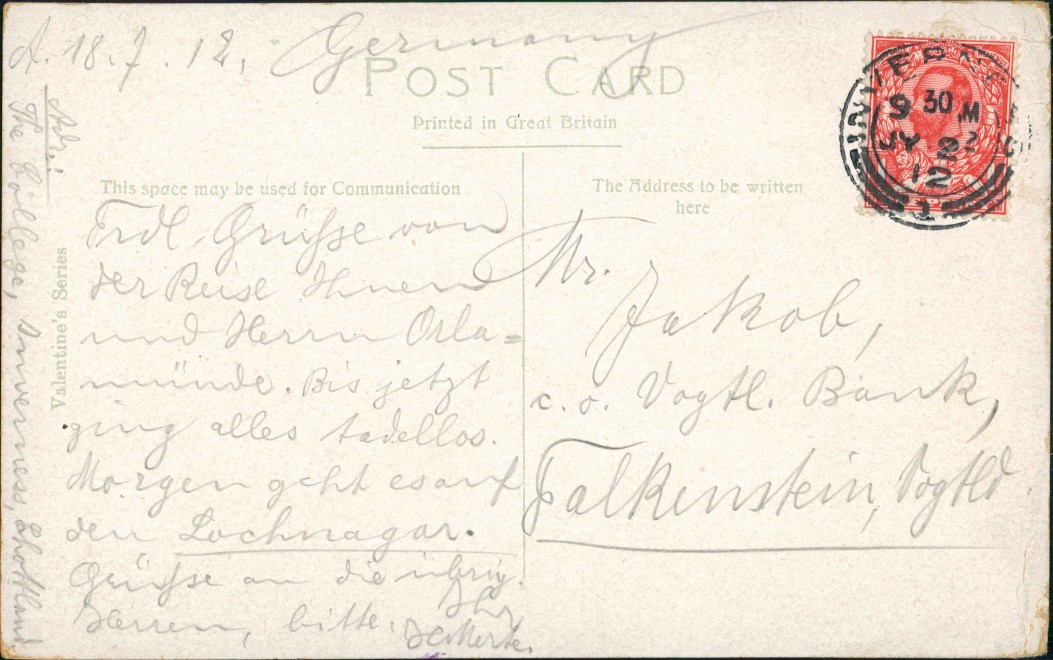 A. 18.7.12. Germany
POST CARD
Printed in Great Britain
INVERNESS
9 30 M
JY 22
12
1
This space may be used for Communication
The Address to be written
here
Valentine's Series
Adr.:
The College, Inverness, Schottland.
Frdl Grüsse von
der Reise Ihnen
und Herrn Orla=
münde. Bis jetzt
ging alles tadellos.
Morgen geht es auf
den Lochnagar.
Grüsse an die übrig.
Herren, bitte. Ihr
Mr. Jakob,
c. o. Vogtl. Bank,
Falkenstein, Vogtld.